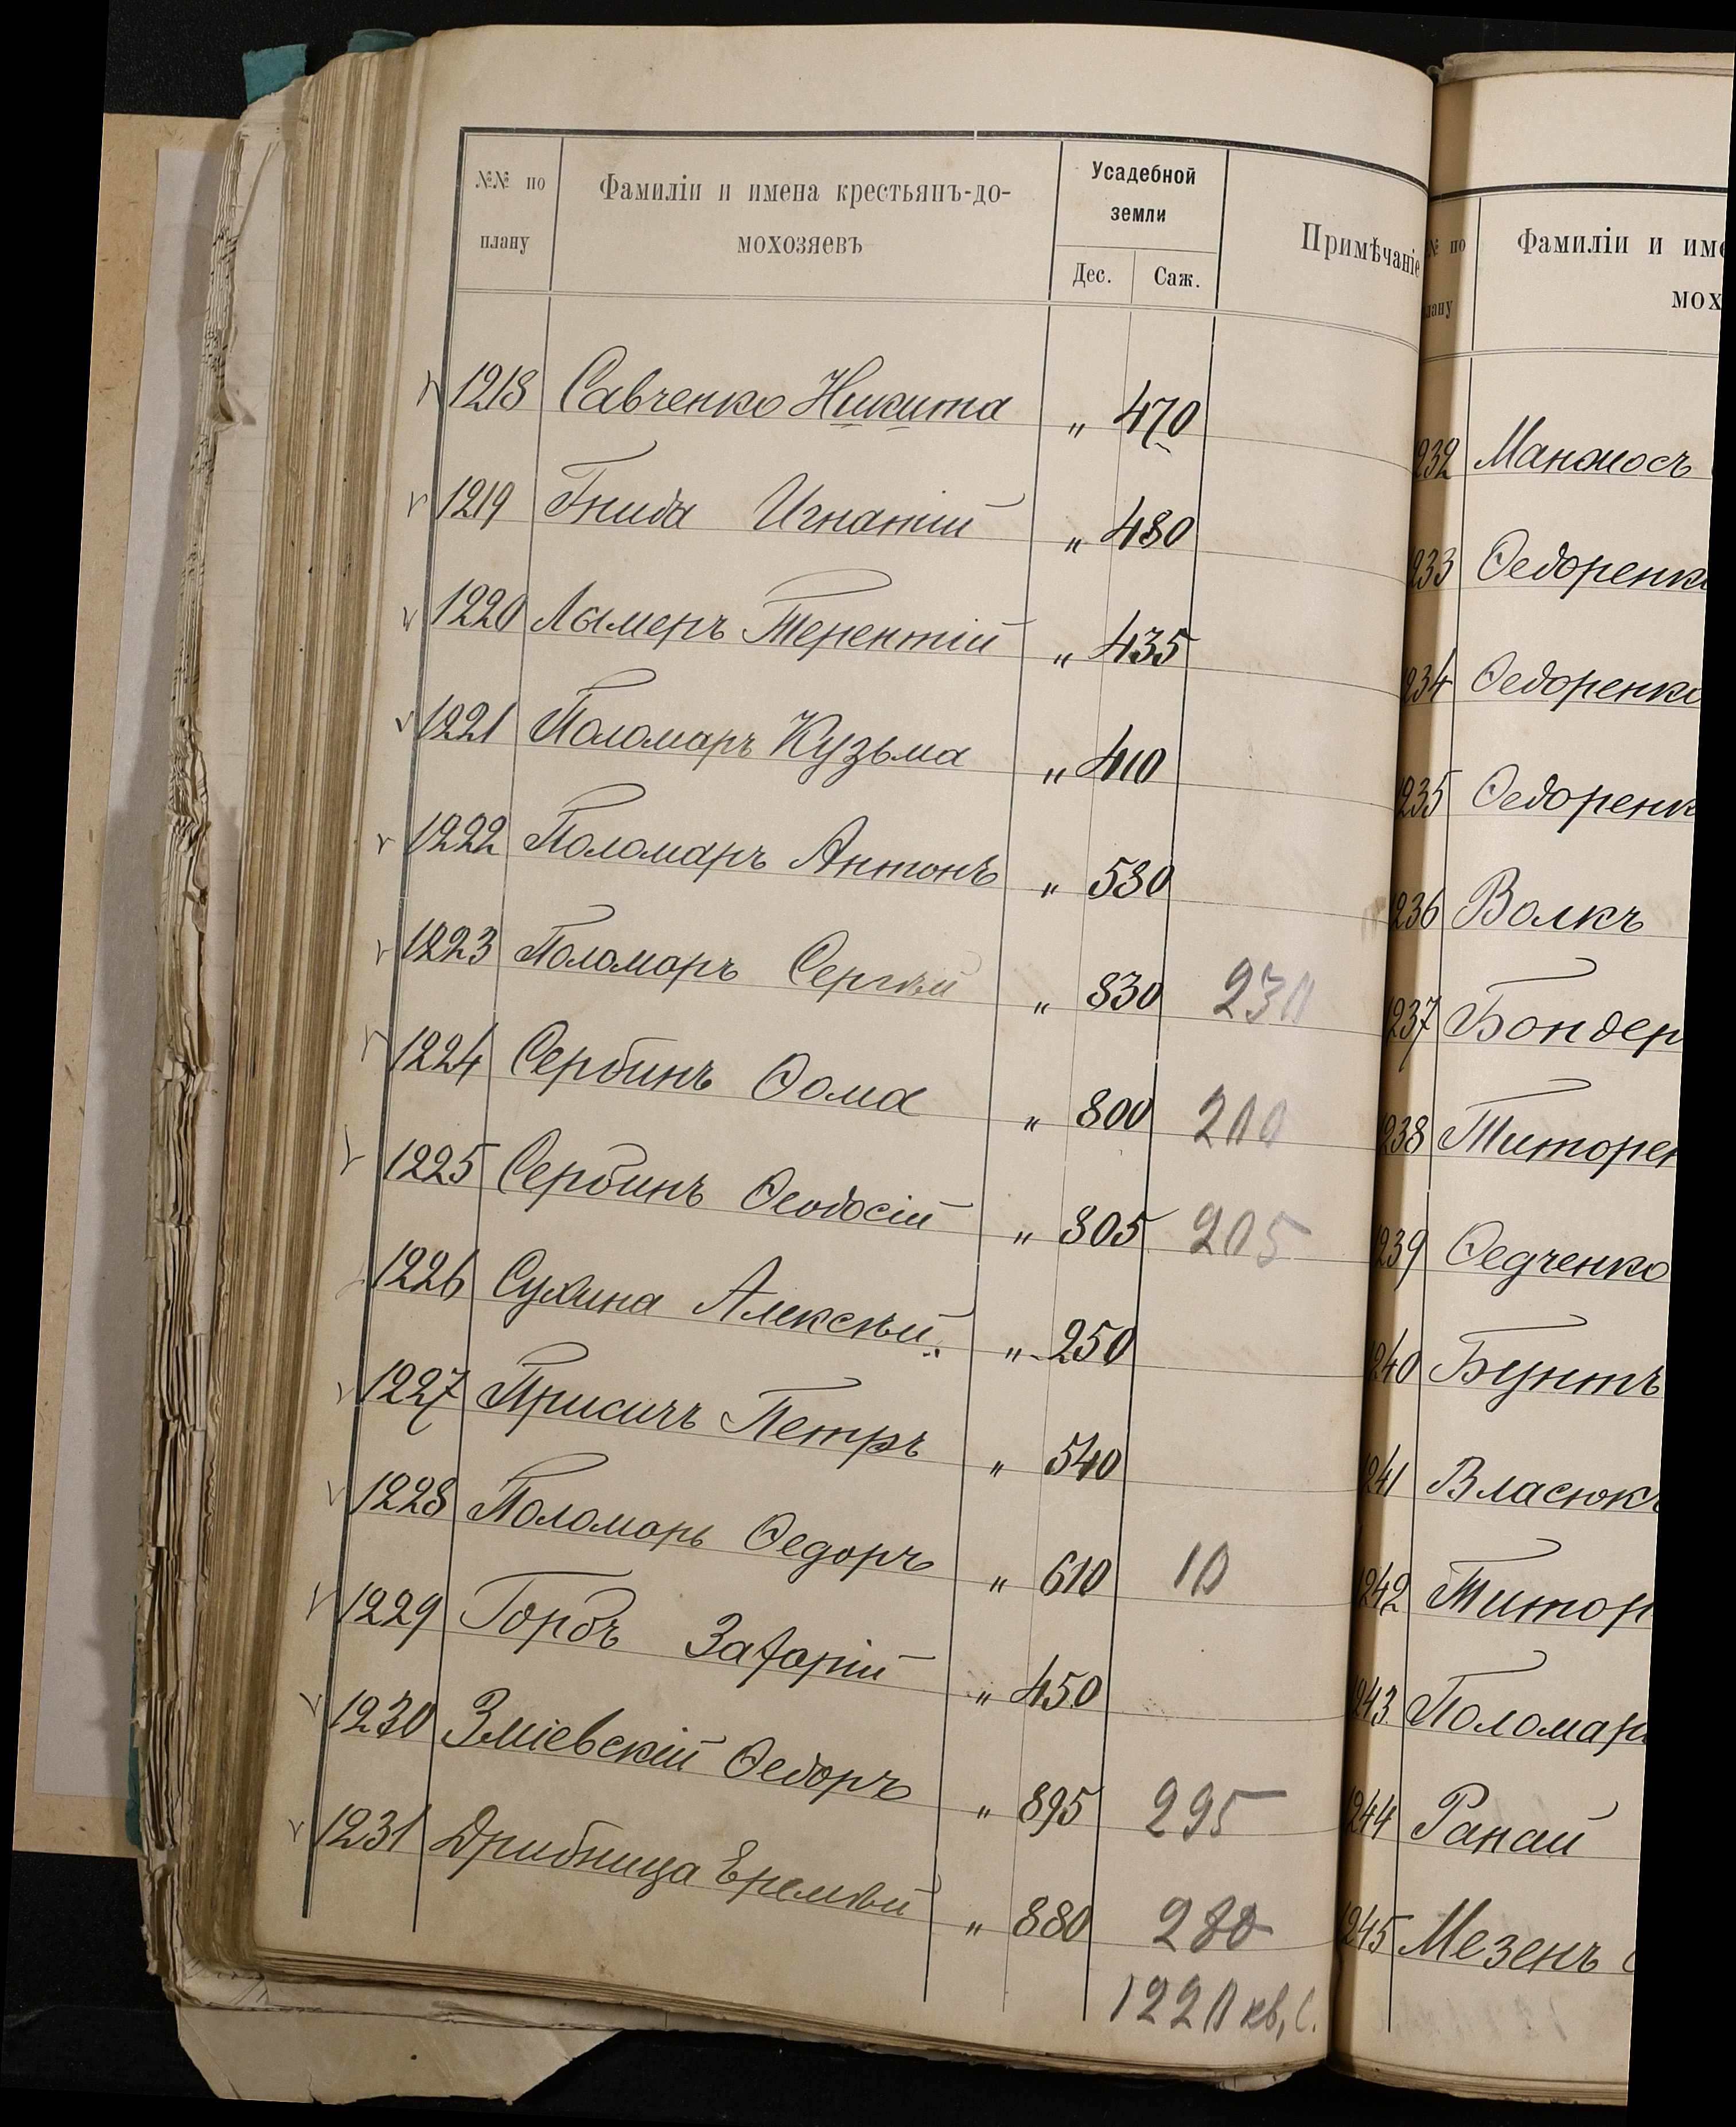 №№ по плану | Фамиліи и имена крестьянъ-до-мохозяевъ | Усадебной земли | Примѣчаніе
Дес. | Саж.
1218 Савченко Никита " 470
1219 Гнида Игнатій " 480
1220 Лымеръ Терентій " 435
1221 Поломаръ Кузьма " 410
1222 Поломаръ Антонъ " 580
1223 Поломаръ Сергѣй " 830 230
1224 Сербинъ Ѳома " 800 200
1225 Сербинъ Ѳеодосій " 805 205
1226 Сухина Алексѣй " 250
1227 Присичъ Петръ " 540
1228 Поломаръ Ѳедоръ " 610 10
1229 Горбъ Захарій " 450
1230 Зміевскій Ѳедоръ " 895 295
1231 Дрибница Еремѣй " 880 280
1220 кв. с.
№ по лану | Фамиліи и име
мох
232 Маномосъ
233 Ѳедоренко
234 Ѳедоренко
235 Ѳедоренк
236 Волкъ
237 Бондер
238 Титорен
239 Ѳедченко
240 Бунтъ
241 Власюкъ
242 Титор
243 Поломар
244 Ранай
245 Мезенъ